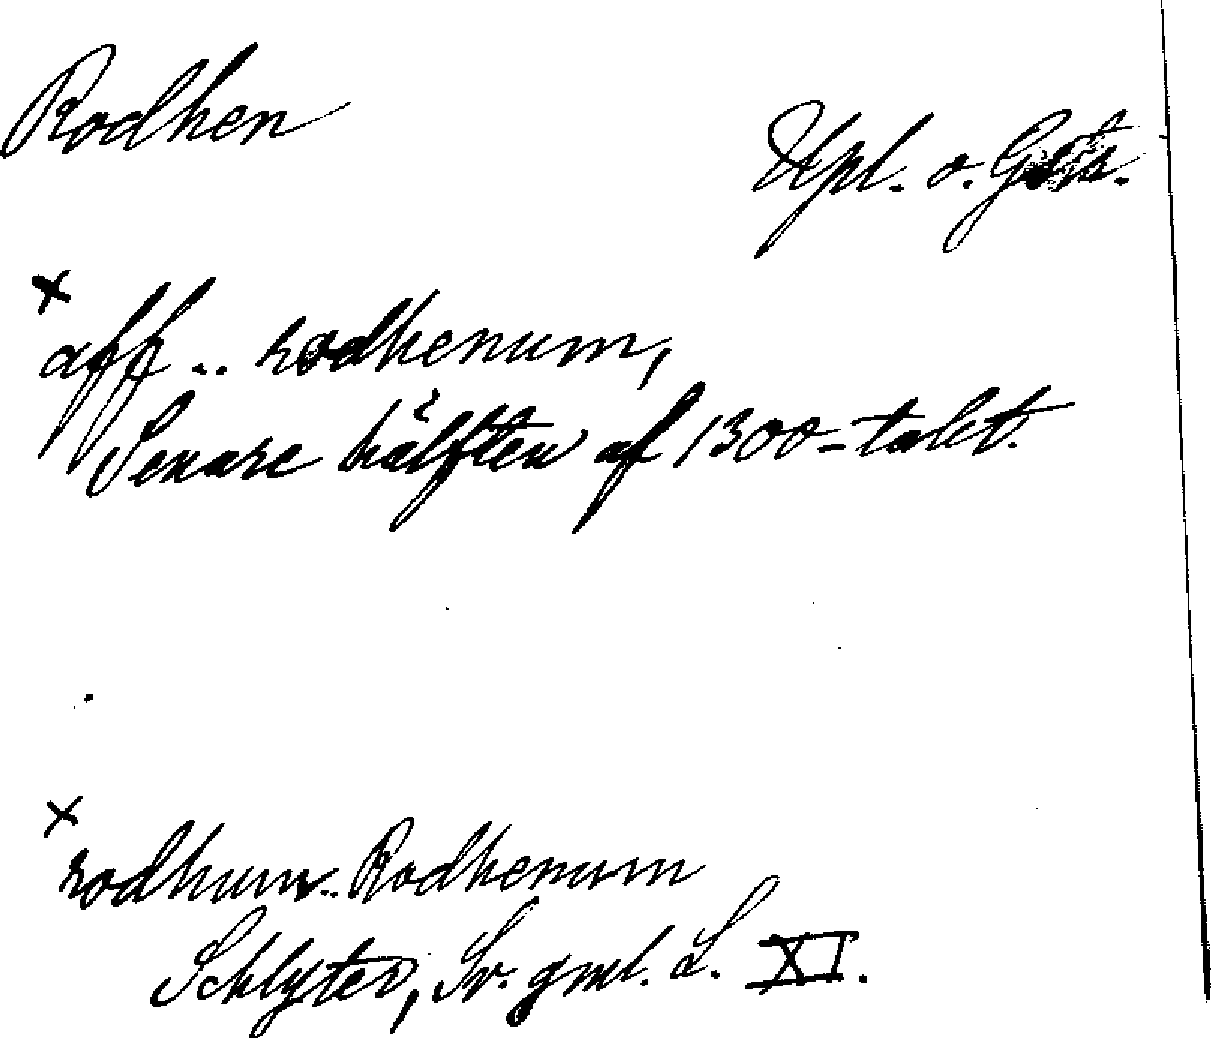 Rodhen
Upl. o. Gästr.
×
aff .. rodhenum,
Senare hälften af 1300-talet.
×
rodhum .. Rodhenum
Schlyter, Sv. gml. L. XI.